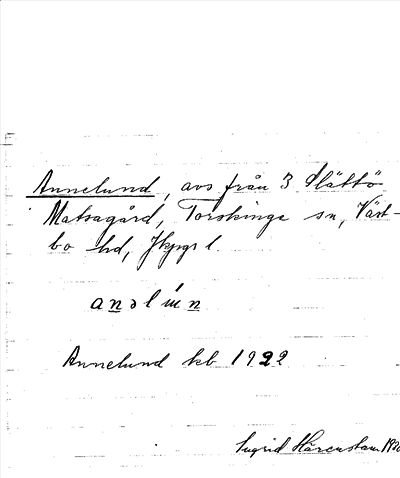 Annelund, avs från 3 Slättö
Matsagård, Torskinge sn, Väst-
bo hd, Jkpgs l
Annelund kb 1922
Ingrid Härenstam